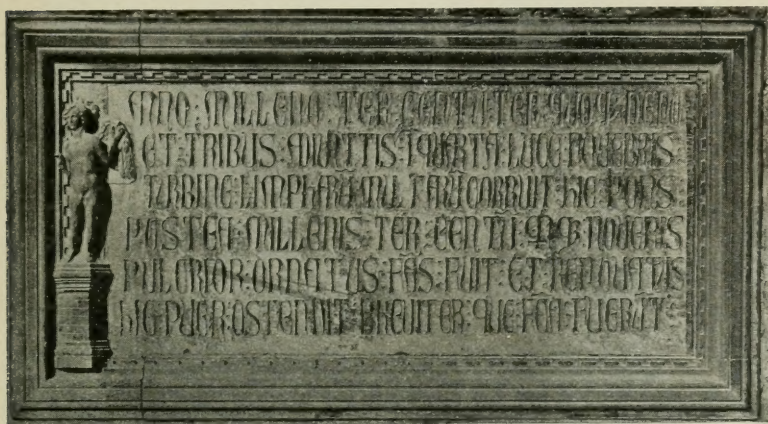 ANNO : MILLENO : TER : CENTŪ : TER : QUOQ : DENO
ET : TRIBUS : ADIUNTIS : Ī QUARTA : LUCE NOVĒBRIS
TURBINE : LIMPHARŪ MULTARŪ CORRUIT : HIC PONS
POSTEA : MILLENIS : TER : CENTŪ : NOVENIS
PULCRIOR : ORNATUS : FĀS : FUIT : ET RENOVATUS
HIC PUER : OSTENDIT BREVITER : QUE FCĀ FUERŪT